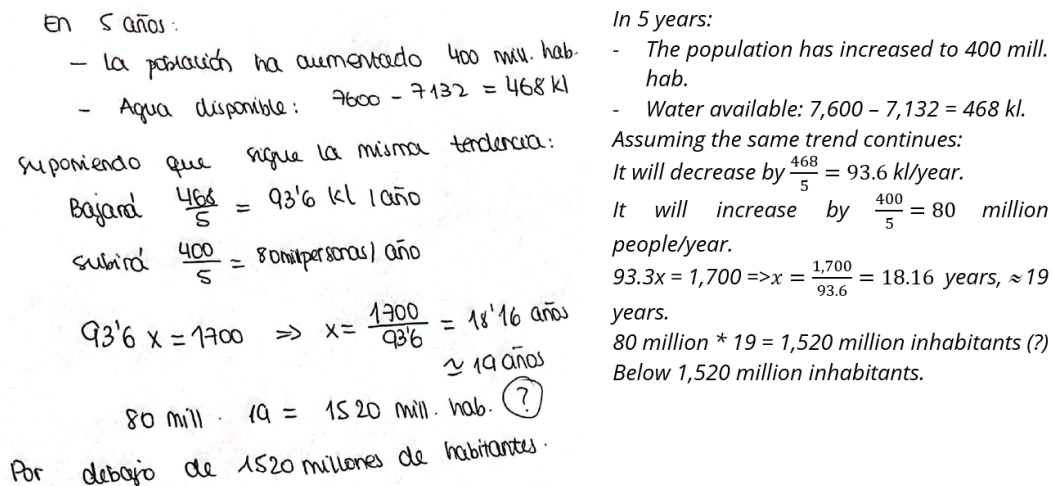 En 5 años:
- La población ha aumentado 400 mill. hab.
- Agua disponible: 7600 - 7132 = 468 kl
suponiendo que sigue la misma tendencia:
Bajará 468/5 = 93'6 kl / año
subirá 400/5 = 80 mill personas / año
93'6 x = 1700 => x = 1700/93'6 = 18'16 años
≃ 19 años
80 mill · 19 = 1520 mill. hab. (?)
Por debajo de 1520 millones de habitantes.
In 5 years:
- The population has increased to 400 mill.
hab.
- Water available: 7,600 – 7,132 = 468 kl.
Assuming the same trend continues:
It will decrease by 468/5 = 93.6 kl/year.
It will increase by 400/5 = 80 million
people/year.
93.3x = 1,700 =>x = 1,700/93.6 = 18.16 years, ≈19
years.
80 million * 19 = 1,520 million inhabitants (?)
Below 1,520 million inhabitants.